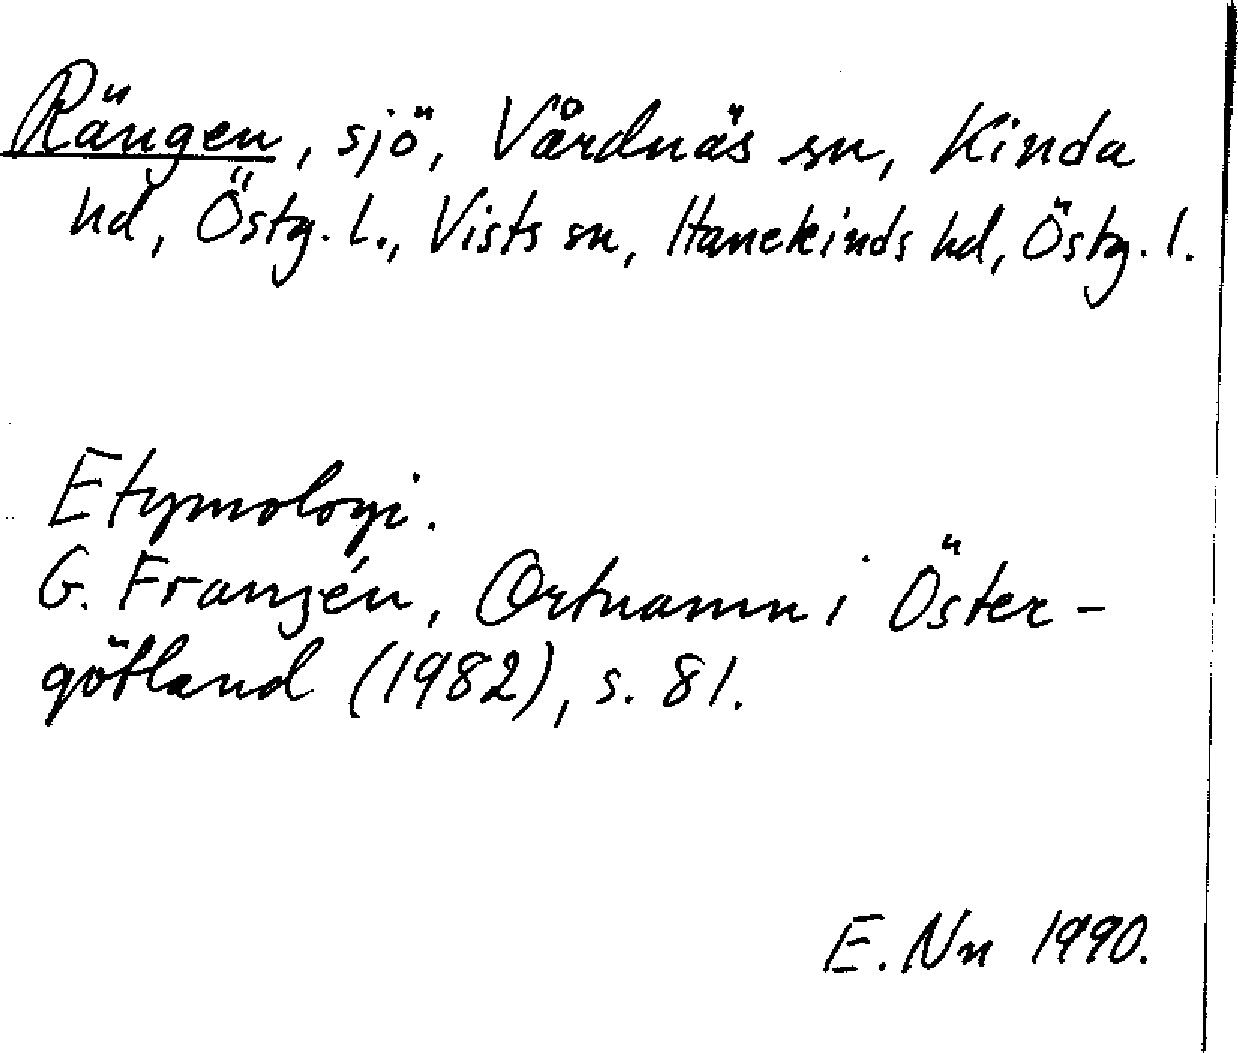 Rängen, sjö, Vårdnäs sn, Kinda
hd, Östg. l., Vists sn, Hanekinds hd, Östg. l.
Etymologi.
G. Franzén, Ortnamn i Öster-
götland (1982), s. 81.
E. Nn 1990.